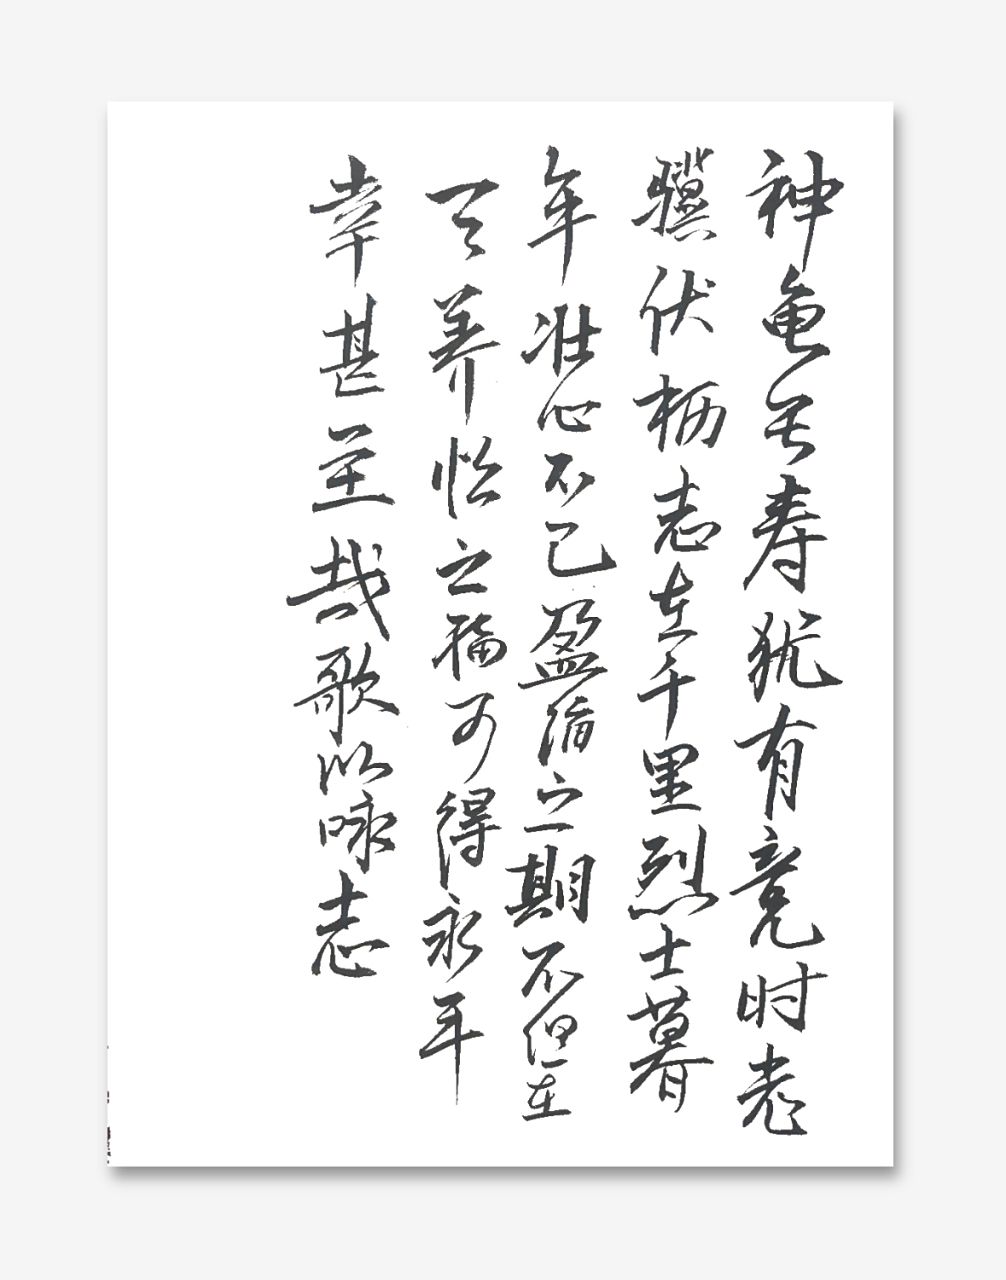 神龟虽寿犹有竟时老
骥伏枥志在千里烈士暮
年壮心不已盈缩之期不但在
天养怡之福可得永年
幸甚至哉歌以咏志